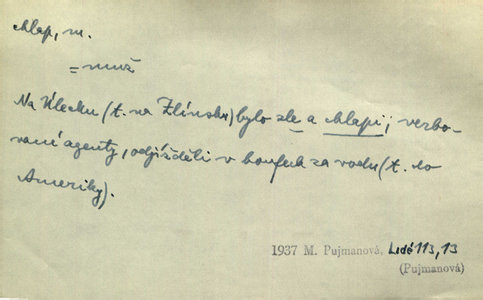 chlap, m.
= muž
Na Úlecku (t. na Zlínsku) bylo zle a chlapi, verbo-
vaní agenty, odjížděli v houfech za vodu (t. do
Ameriky).
1937 M. Pujmanová, Lidé 113, 13
(Pujmanová)